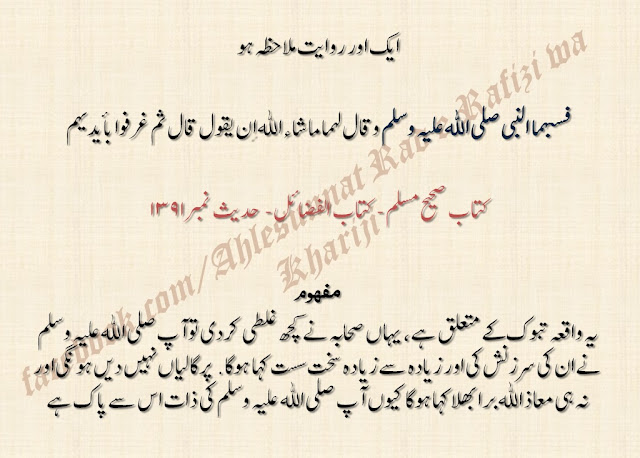 ایک اور روایت ملاحظہ ہو
فسبهما النبی صلی اللہ علیہ وسلم و قال لهما ما شاء اللہ اِن یقول قال ثم غرفوا بأیدیهم
کتاب صحیح مسلم - کتاب الفضائل - حدیث نمبر ۱۳۹۱
مفہوم
یہ واقعہ تبوک کے متعلق ہے، یہاں صحابہ نے کچھ غلطی کر دی تو آپ صلی اللہ علیہ وسلم
نے ان کی سرزنش کی اور زیادہ سے زیادہ سخت سست کہا ہوگا. پر گالیاں نہیں دیں ہونگی اور
نہ ہی معاذ اللہ برا بھلا کہا ہوگا کیوں آپ صلی اللہ علیہ وسلم کی ذات اس سے پاک ہے
facebook.com/Ahlesunnat Rad e Rafizi wa
Kharijji